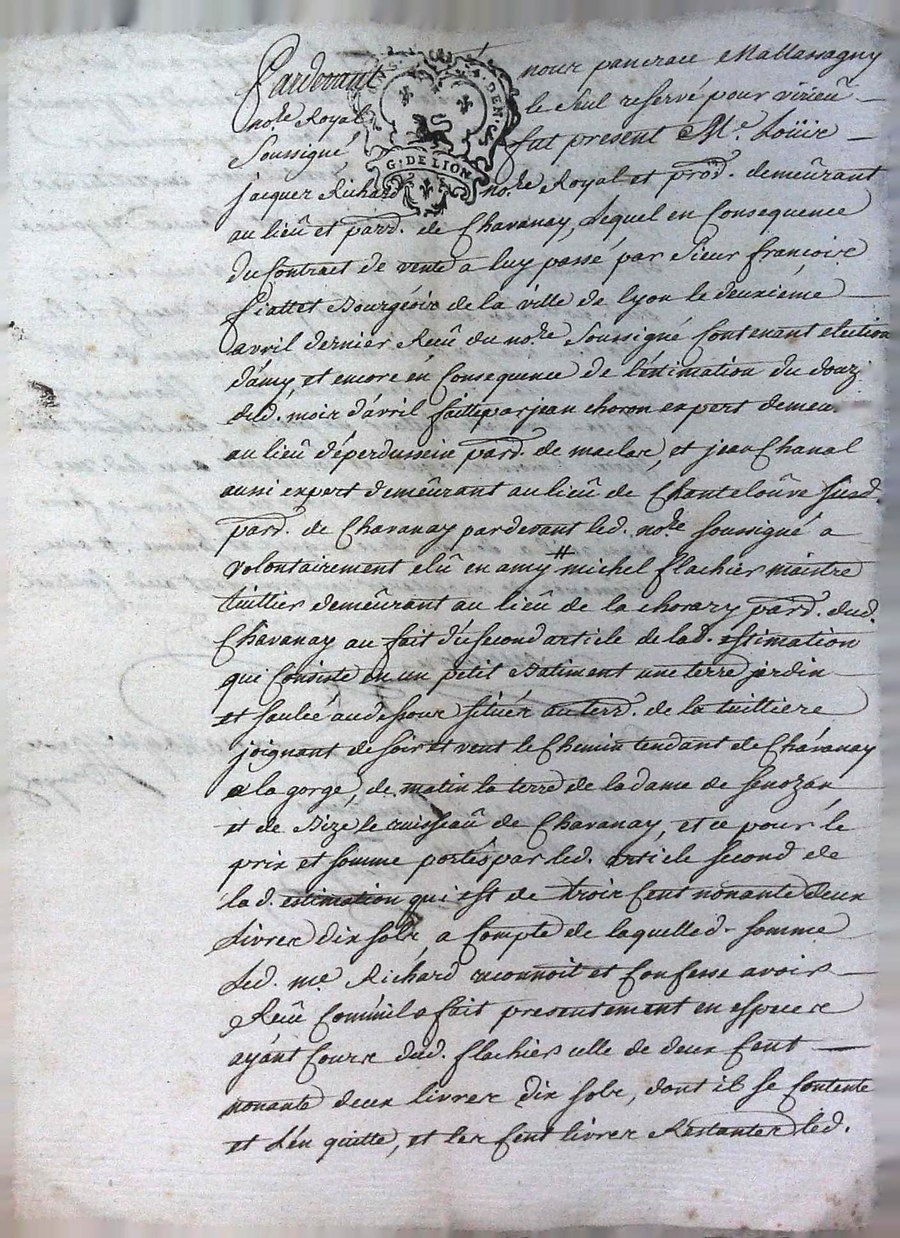 Pardevant nous pancrace Mallassagny
no.re Royal le seul reservé pour virieû
soussigné, fut present M.e Loüis
G. DE LION
jacques Richard no.re Royal et pro.r demeûrant
au lieû et par.d de Chavanay, Lequel en Consequence
du Contract de vente a luy passé par sieur françois
fiattet Bourgeois de la ville de lyon le deuxiéme
avril dernier Reçû du no.re soussigné Contenant election
d'amy et encore én Consequence de l'estimation du douz.
dud. mois d'avril faitte par jean choron expert demeu.
au lieû d'éperdussein par.d de maclas, et jean Chanal
aussi expert demeûrant au lieû de Chanteloûve susd.
par.d de Chavanay pardevant led. no.re soussigné a
volontairement elû en amy # michel flachier maistre
tuillier demeûrant au lieû de la chorary par.d dud.
Chavanay au fait du second article de lad. estimation
qui Consiste en un petit Bâtiment une terre jardin
et saulée audessous sitûés au terr.d de la tuilliere
joignant de soir et vent le Chemin tendant de Chavanay
a la gorge, de matin la terre de la dame de senozan
et de Bize le ruisseaû de Chavanay, et ce pour le
prix et somme portés par led. article second de
lad. estimation qui est de trois Cent nonante deux
Livres dix sols, a Compte de laquelle d. somme
Led. me Richard reconnoit et Confesse avoir
Reçû Comm'il a fait presentement en especes
ayant Cours dud. flachier celle de deux Cent
nonante deux livres dix sols, dont il se Contente
et L'en quitte, et les Cent livres Restantes led.